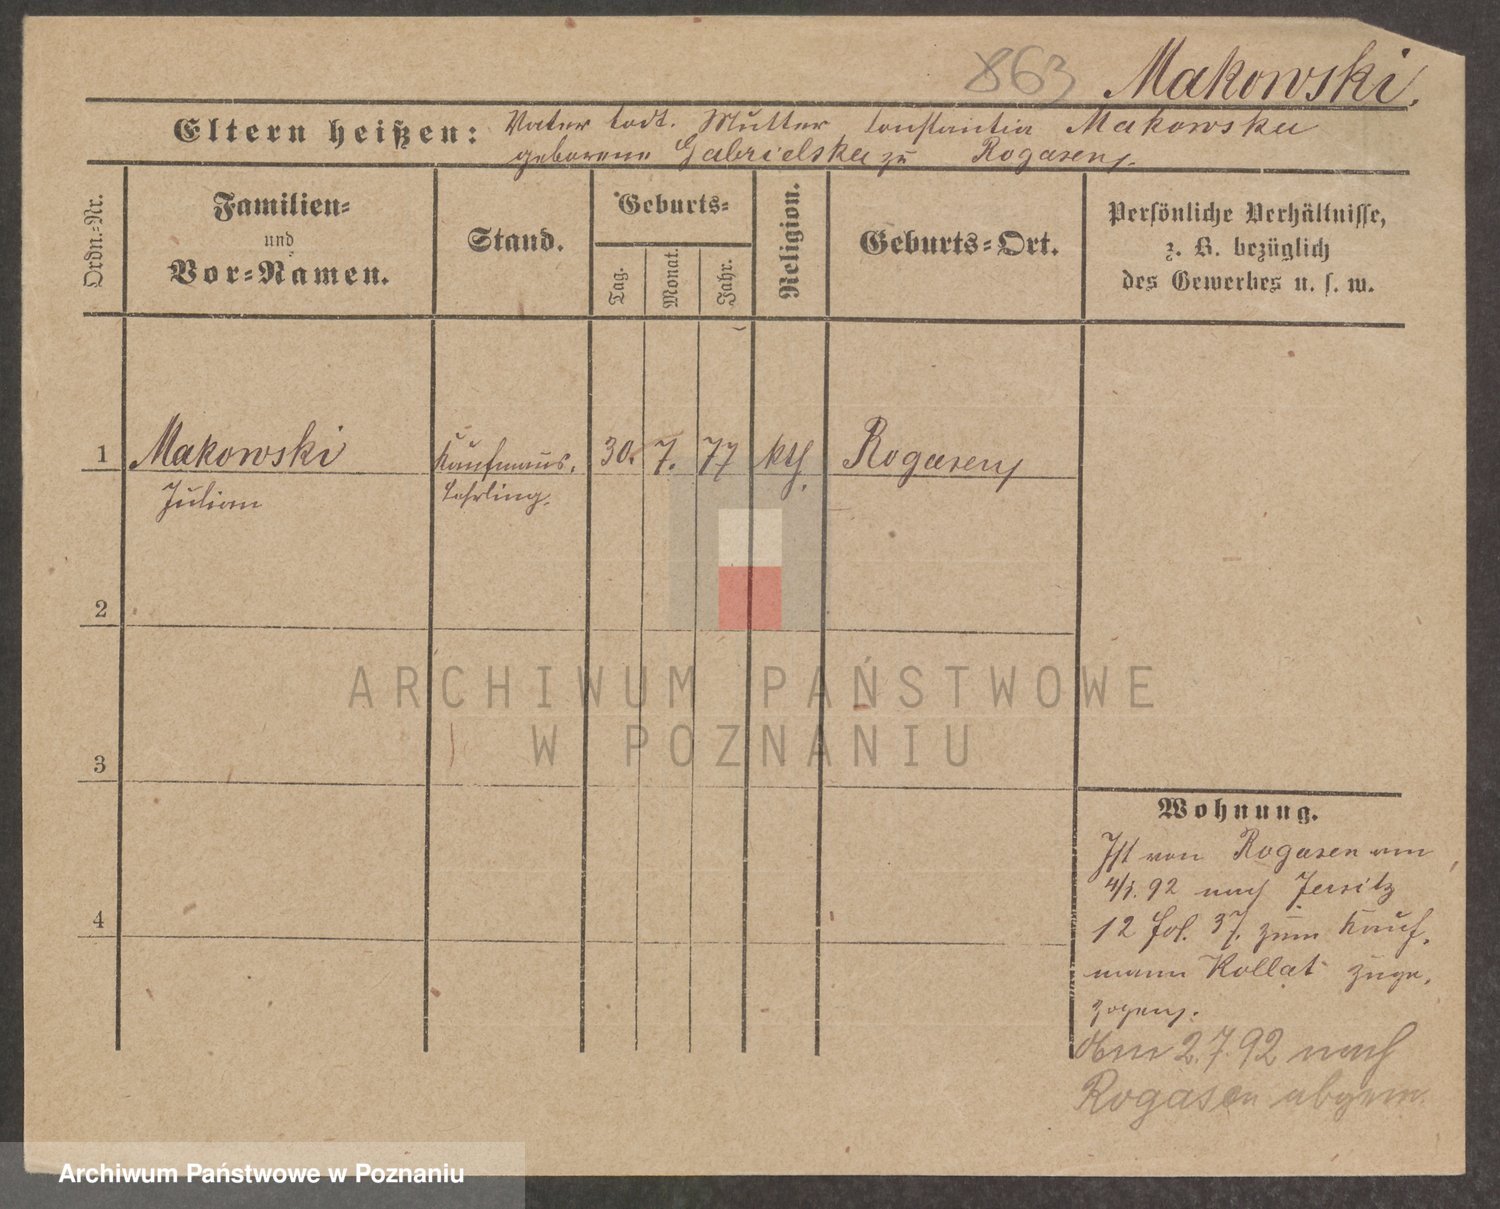 863 Makowski.
Eltern heißen: Vater todt. Mutter Constantia Makowska
geborene Gabrielska zu Rogasen.
Ordn.-Nr.
Familien-
und
Vor-Namen.
Stand.
Geburts-
Tag.
Monat.
Jahr.
Religion.
Geburts-Ort.
Persönliche Verhältnisse,
z. B. bezüglich
des Gewerbes u. s. w.
1 Makowski Kaufmanns- 30. 7. 77 kth. Rogasen
Julian Lehrling.
2
3
4
Wohnung.
Ist von Rogasen am
4/1. 92 nach Jersitz
12 fol. 37. zum Kauf-
mann Kollat zuge-
zogen.
Am 2.7.92 nach
Rogasen abgem.
ARCHIWUM PAŃSTWOWE
W POZNANIU
Archiwum Państwowe w Poznaniu